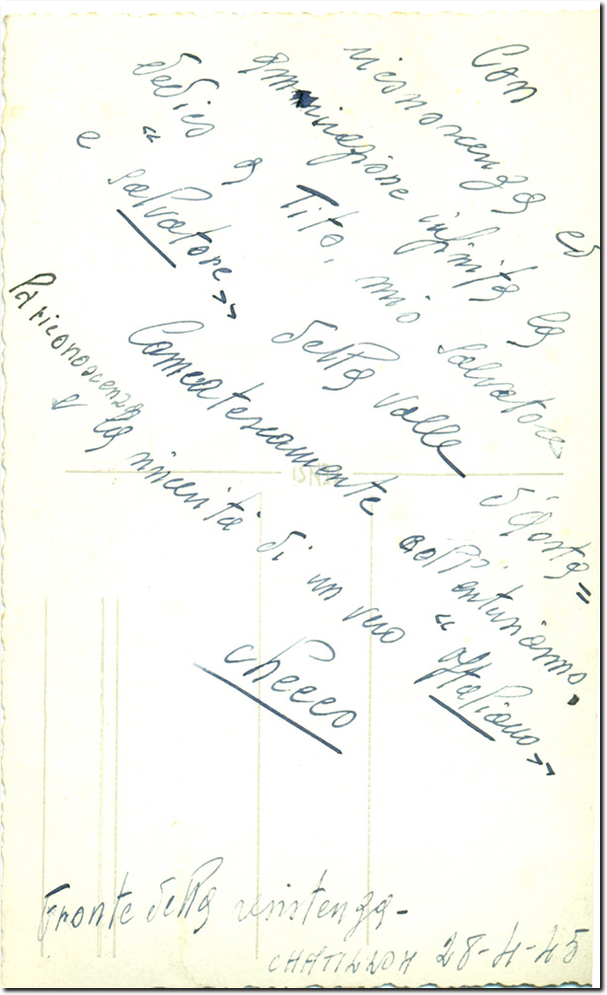 Con
riconoscenza ed
ammirazione infinita la
dedico a Tito, mio salvatore
e « salvatore » della valle d'Aosta =
Cameratescamente coll'entusiasmo,
la riconoscenza
e la sincerità di un vero « Italiano »
Checco
Fronte della resistenza -
CHATILLON 28-4-45